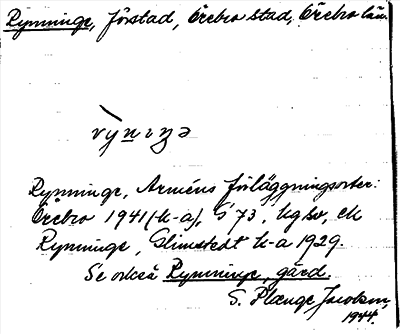 Rynninge, förstad, Örebro stad, Örebro län.
rỳnıŋə
Rynninge, Arméns förläggningsorter:
Örebro 1941 (k-a), S 73, kgbv, ek
Rynninge, Glimstedt k-a 1929.
Se också Rynninge, gård.
S. Plænge Jacobson,
1944.